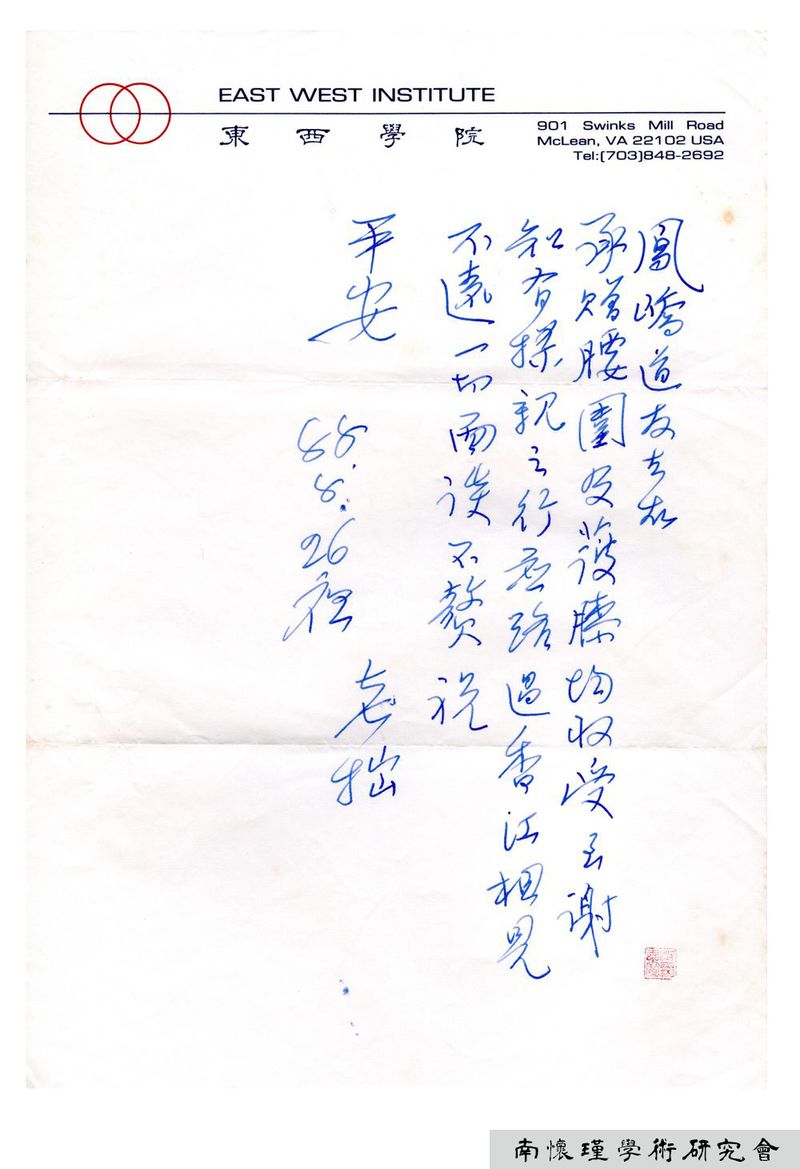 EAST WEST INSTITUTE
東西學院
901 Swinks Mill Road
McLean, VA 22102 USA
Tel:(703)848-2692
鳳嬌道友士
承贈腰圍及護膝均收受至謝
知有探親之行並路過香江相見
不遠一切面談不贅說
平安
88.8.26夜
老拙
南懷瑾學術研究會